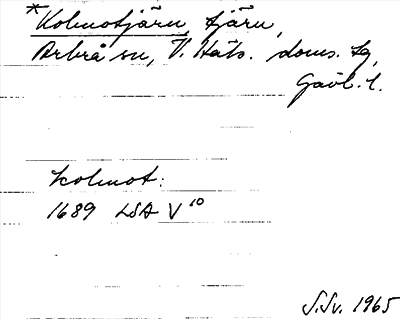 *Kolmotjärn, tjärn,
Arbrå sn, V. Häls. doms. tg,
Gävl. l.
Kolmot:
1689 LSA V¹⁰
S.Sv. 1965